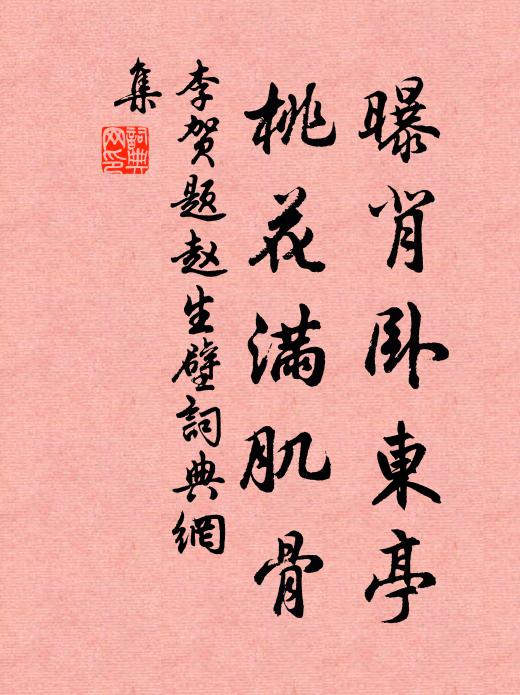 曝背卧東亭
桃花满肌骨
李贺题赵生壁詞典網
集
詞典網印